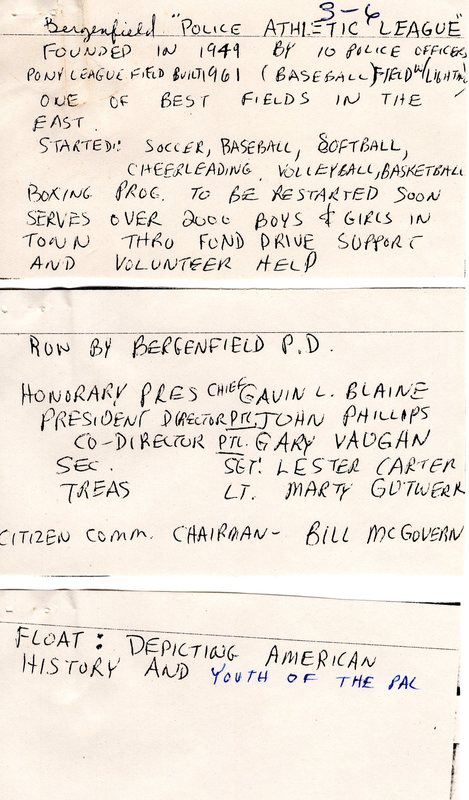 3-6
Bergenfield "POLICE ATHLETIC LEAGUE"
FOUNDED IN 1949 BY 10 POLICE OFFICERS
PONY LEAGUE FIELD BUILT 1961 (BASEBALL) FIELD W/LIGHTING
ONE OF BEST FIELDS IN THE
EAST.
STARTED: SOCCER, BASEBALL, SOFTBALL,
CHEERLEADING, VOLLEYBALL, BASKETBALL
BOXING PROG. TO BE RESTARTED SOON
SERVES OVER 2000 BOYS & GIRLS IN
TOWN THRO FUND DRIVE SUPPORT
AND VOLUNTEER HELP
RUN BY BERGENFIELD P.D.
HONORARY PRES CHIEF GAVIN L. BLAINE
PRESIDENT DIRECTOR PTL. JOHN PHILLIPS
CO-DIRECTOR PTL. GARY VAUGAN
SEC. SGT. LESTER CARTER
TREAS LT. MARTY GUTWERK
CITIZEN COMM. CHAIRMAN- BILL MCGOVERN
FLOAT: DEPICTING AMERICAN
HISTORY AND YOUTH OF THE PAL